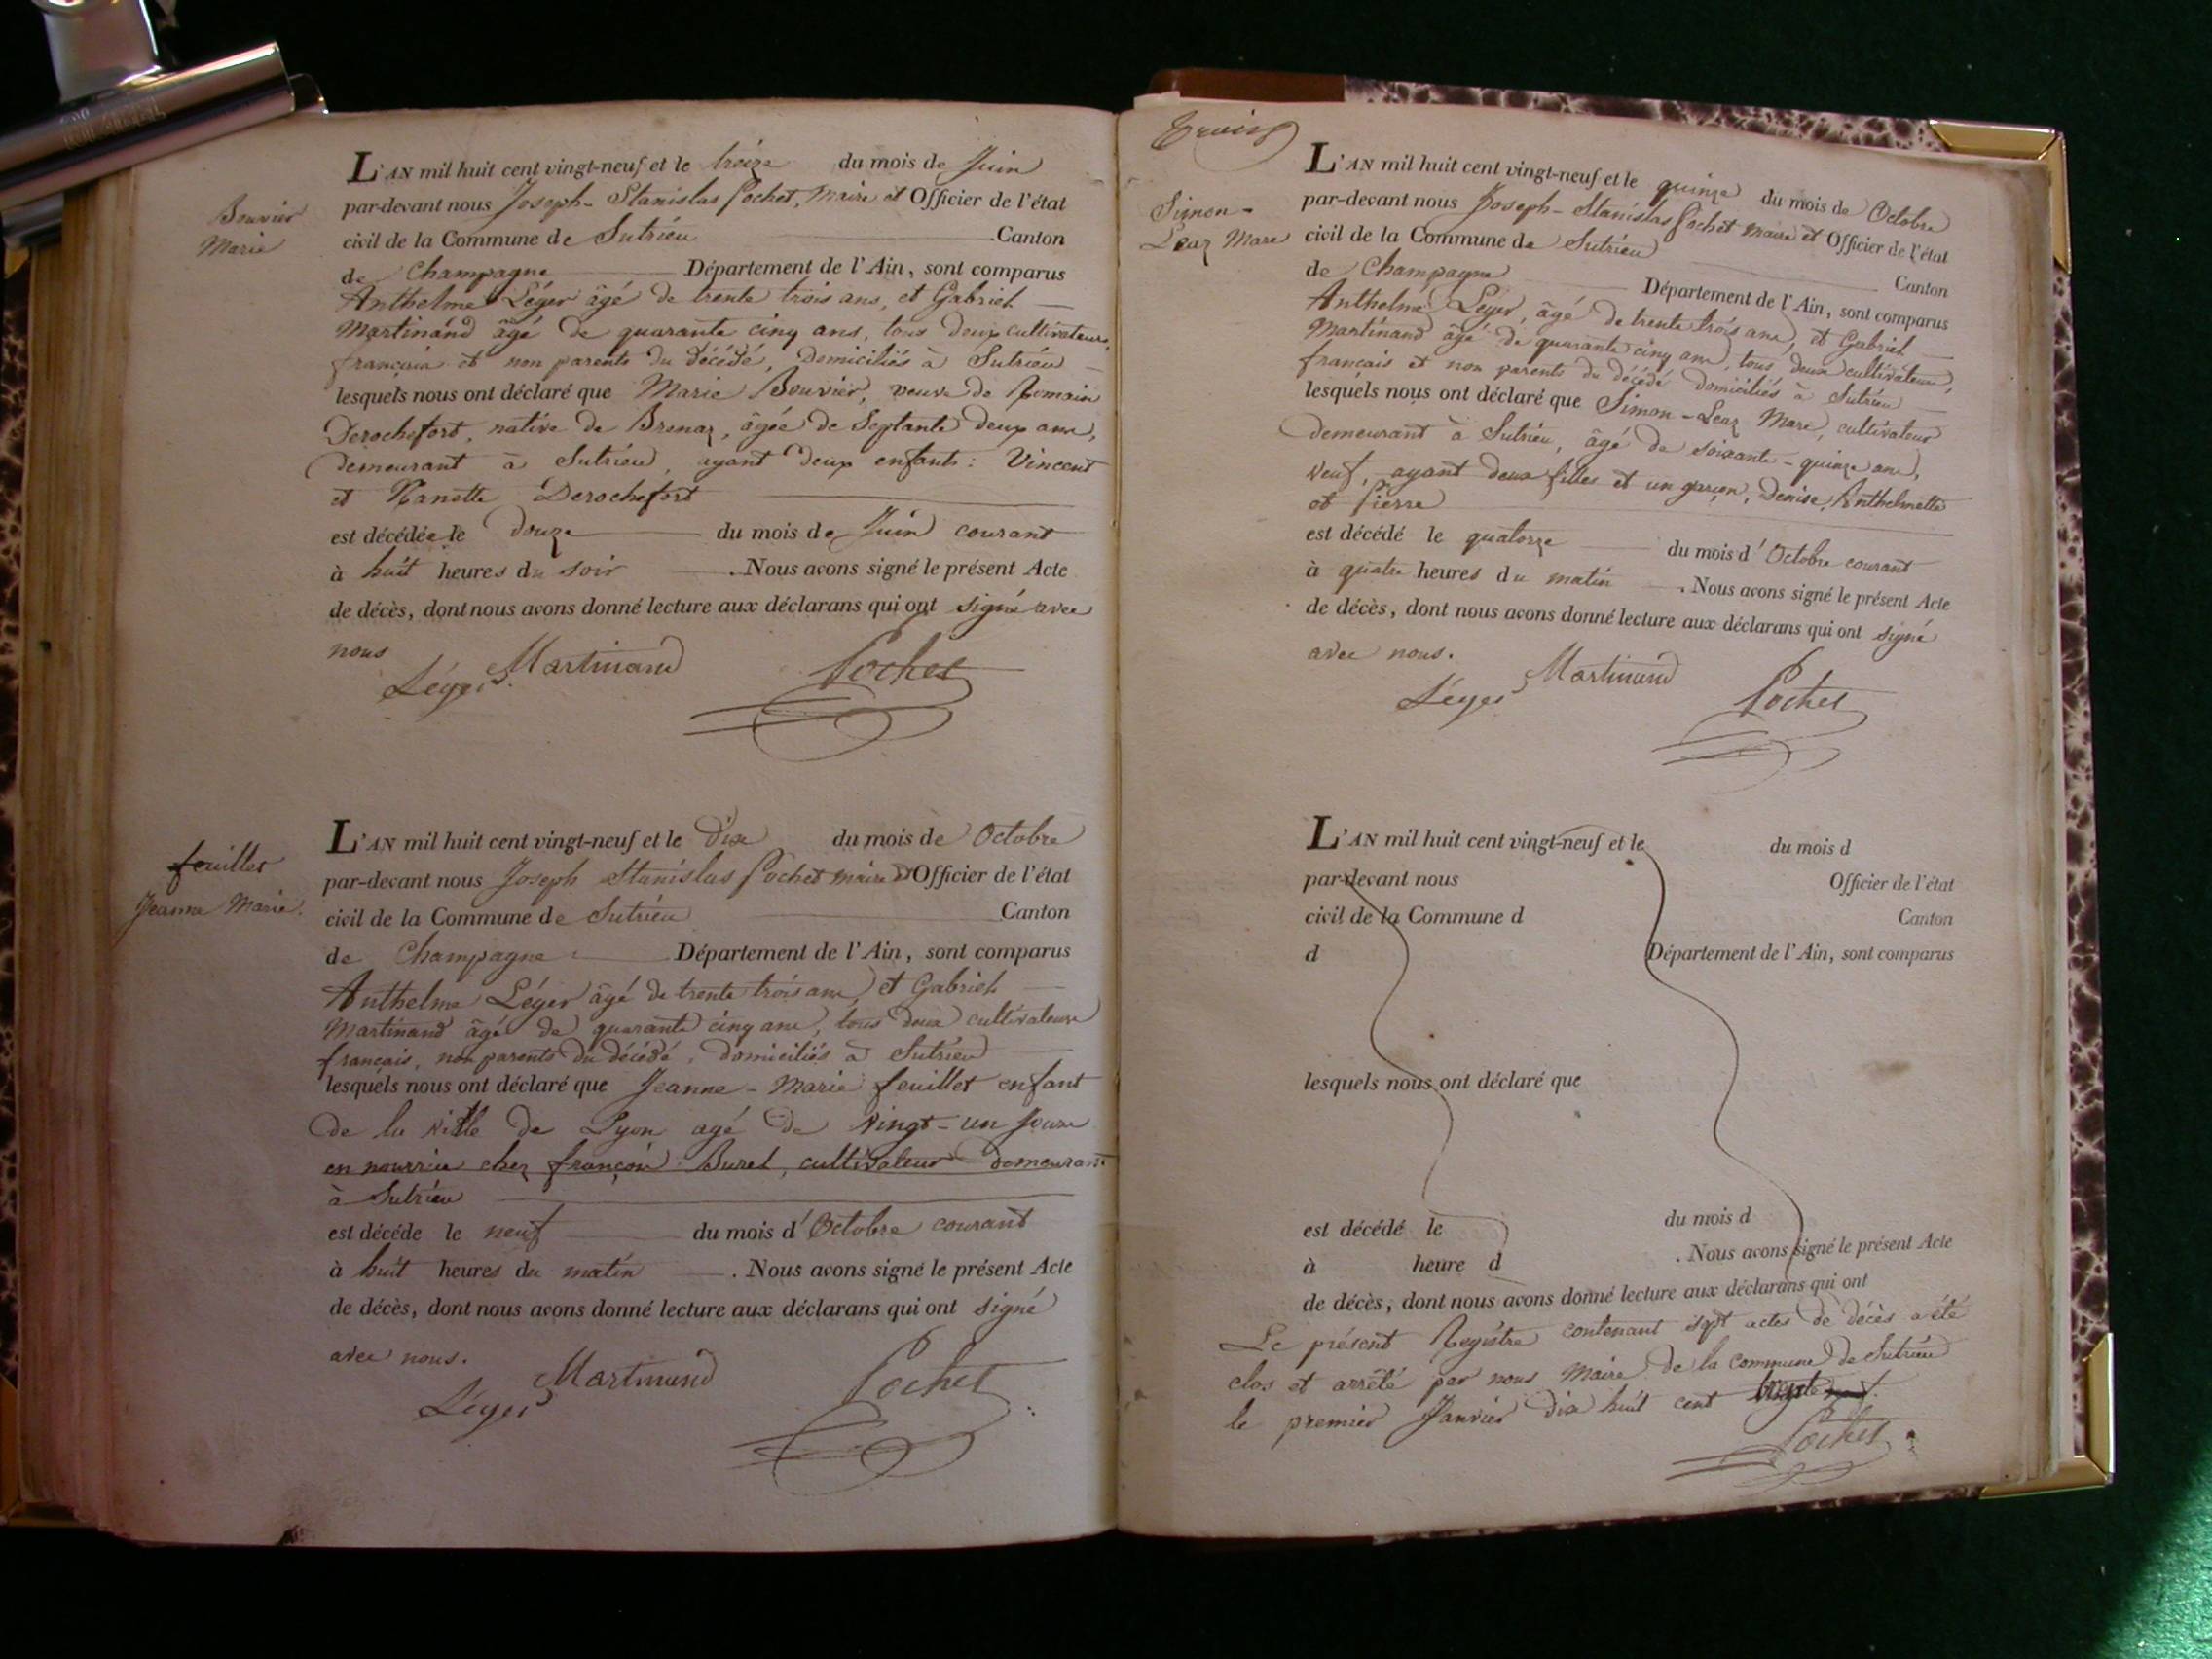 Bouvier
Marie
L'AN mil huit cent vingt-neuf et le treize du mois de Juin
par-devant nous Joseph-Stanislas Pochet, Maire et Officier de l'état
civil de la Commune de Sutrieu Canton
de Champagne Département de l'Ain, sont comparus
Anthelme Léger âgé de trente trois ans, et Gabriel
Martinand âgé de quarante cinq ans, tous deux cultivateurs,
français et non parents du décédé, domiciliés à Sutrieu
lesquels nous ont déclaré que Marie Bouvier, veuve de Romain
Derochefort, native de Brenaz, âgée de Septante deux ans,
demeurant à Sutrieu, ayant deux enfants: Vincent
et Nanette Derochefort
est décédée le douze du mois de Juin courant
à huit heures du soir . Nous avons signé le présent Acte
de décès, dont nous avons donné lecture aux déclarans qui ont signé avec
nous
Léger Martinand Pochet
feuillet
Jeanne Marie.
L'AN mil huit cent vingt-neuf et le dix du mois de Octobre
par-devant nous Joseph Stanislas Pochet maire et Officier de l'état
civil de la Commune de Sutrieu Canton
de Champagne Département de l'Ain, sont comparus
Anthelme Léger âgé de trente trois ans, et Gabriel
Martinand âgé de quarante cinq ans, tous deux cultivateurs
français, non parents du décédé, domiciliés à Sutrieu
lesquels nous ont déclaré que Jeanne-Marie feuillet enfant
de la ville de Lyon agé de vingt-un jours
en nourrice chez françois Burel, cultivateur demeurant
à Sutrieu
est décédé le neuf du mois d'Octobre courant
à huit heures du matin . Nous avons signé le présent Acte
de décès, dont nous avons donné lecture aux déclarans qui ont signé
avec nous.
Léger Martinand Pochet
Simon-
Leaz Marc
L'AN mil huit cent vingt-neuf et le quinze du mois de Octobre
par-devant nous Joseph-Stanislas Pochet maire et Officier de l'état
civil de la Commune de Sutrieu Canton
de Champagne Département de l'Ain, sont comparus
Anthelme Léger, âgé de trente trois ans, et Gabriel
Martinand âgé de quarante cinq ans, tous deux cultivateurs,
français et non parents du décédé domiciliés à Sutrieu
lesquels nous ont déclaré que Simon-Leaz Marc, cultivateur
demeurant à Sutrieu, âgé de soixante-quinze ans,
veuf, ayant deux filles et un garçon, Denise, Anthelmette
et Pierre
est décédé le quatorze du mois d'Octobre courant
à quatre heures du matin . Nous avons signé le présent Acte
de décès, dont nous avons donné lecture aux déclarans qui ont signé
avec nous.
Léger Martinand Pochet
L'AN mil huit cent vingt-neuf et le du mois d
par-devant nous Officier de l'état
civil de la Commune d Canton
d Département de l'Ain, sont comparus
lesquels nous ont déclaré que
est décédé le du mois d
à heure d . Nous avons signé le présent Acte
de décès, dont nous avons donné lecture aux déclarans qui ont
Le présent Registre contenant sept actes de décès a été
clos et arrêté par nous Maire de la commune de Sutrieu
le premier Janvier dix huit cent trente
Pochet